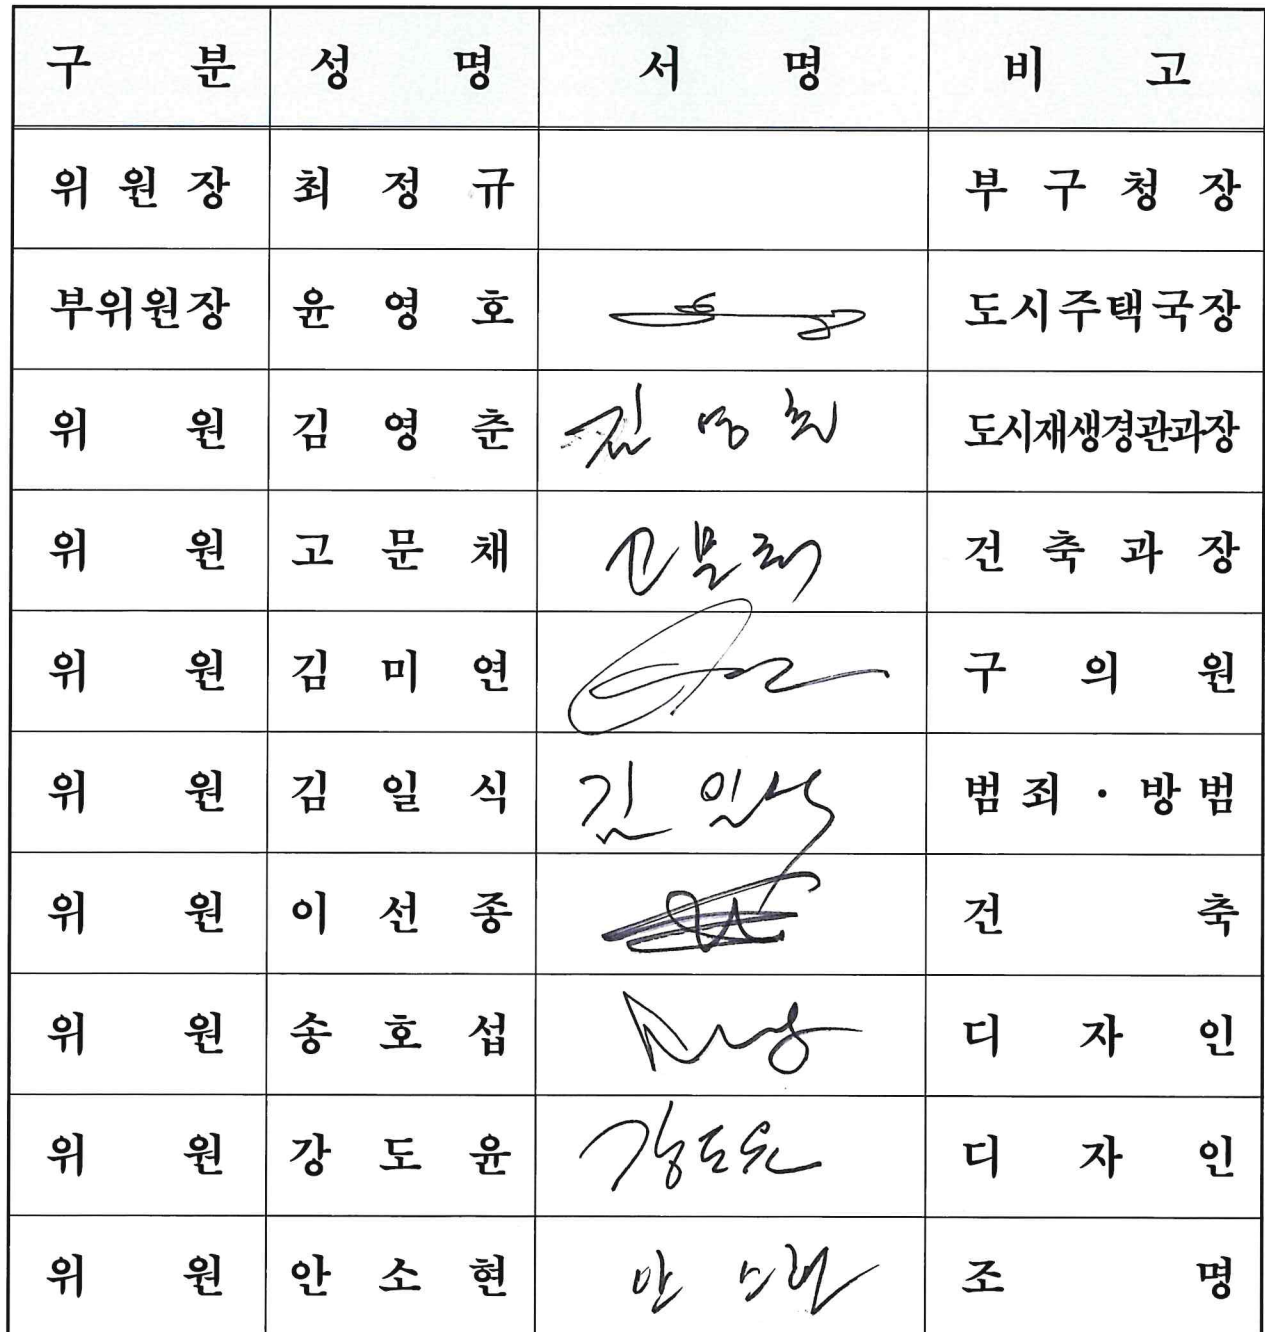 구 분 성 명 서 명 비 고
위 원 장 최 정 규 부 구 청 장
부위원장 윤 영 호 도시주택국장
위 원 김 영 춘 도시재생경관과장
위 원 고 문 채 고문채 건 축 과 장
위 원 김 미 연 구 의 원
위 원 김 일 식 김일식 범죄 · 방범
위 원 이 선 종 건 축
위 원 송 호 섭 디 자 인
위 원 강 도 윤 강도윤 디 자 인
위 원 안 소 현 안소현 조 명